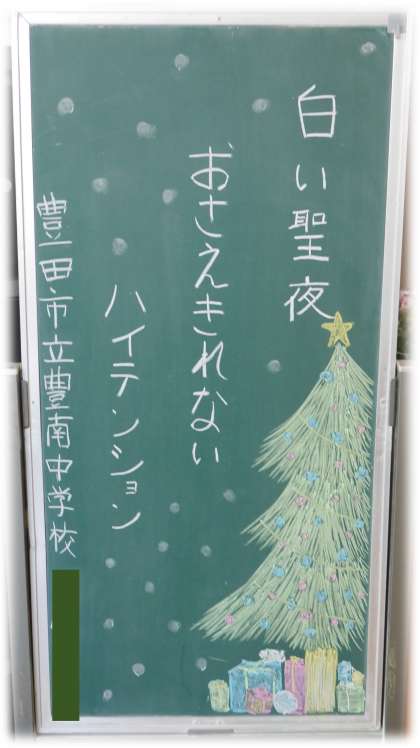 白い聖夜
おさえきれない
ハイテンション
豊田市立豊南中学校